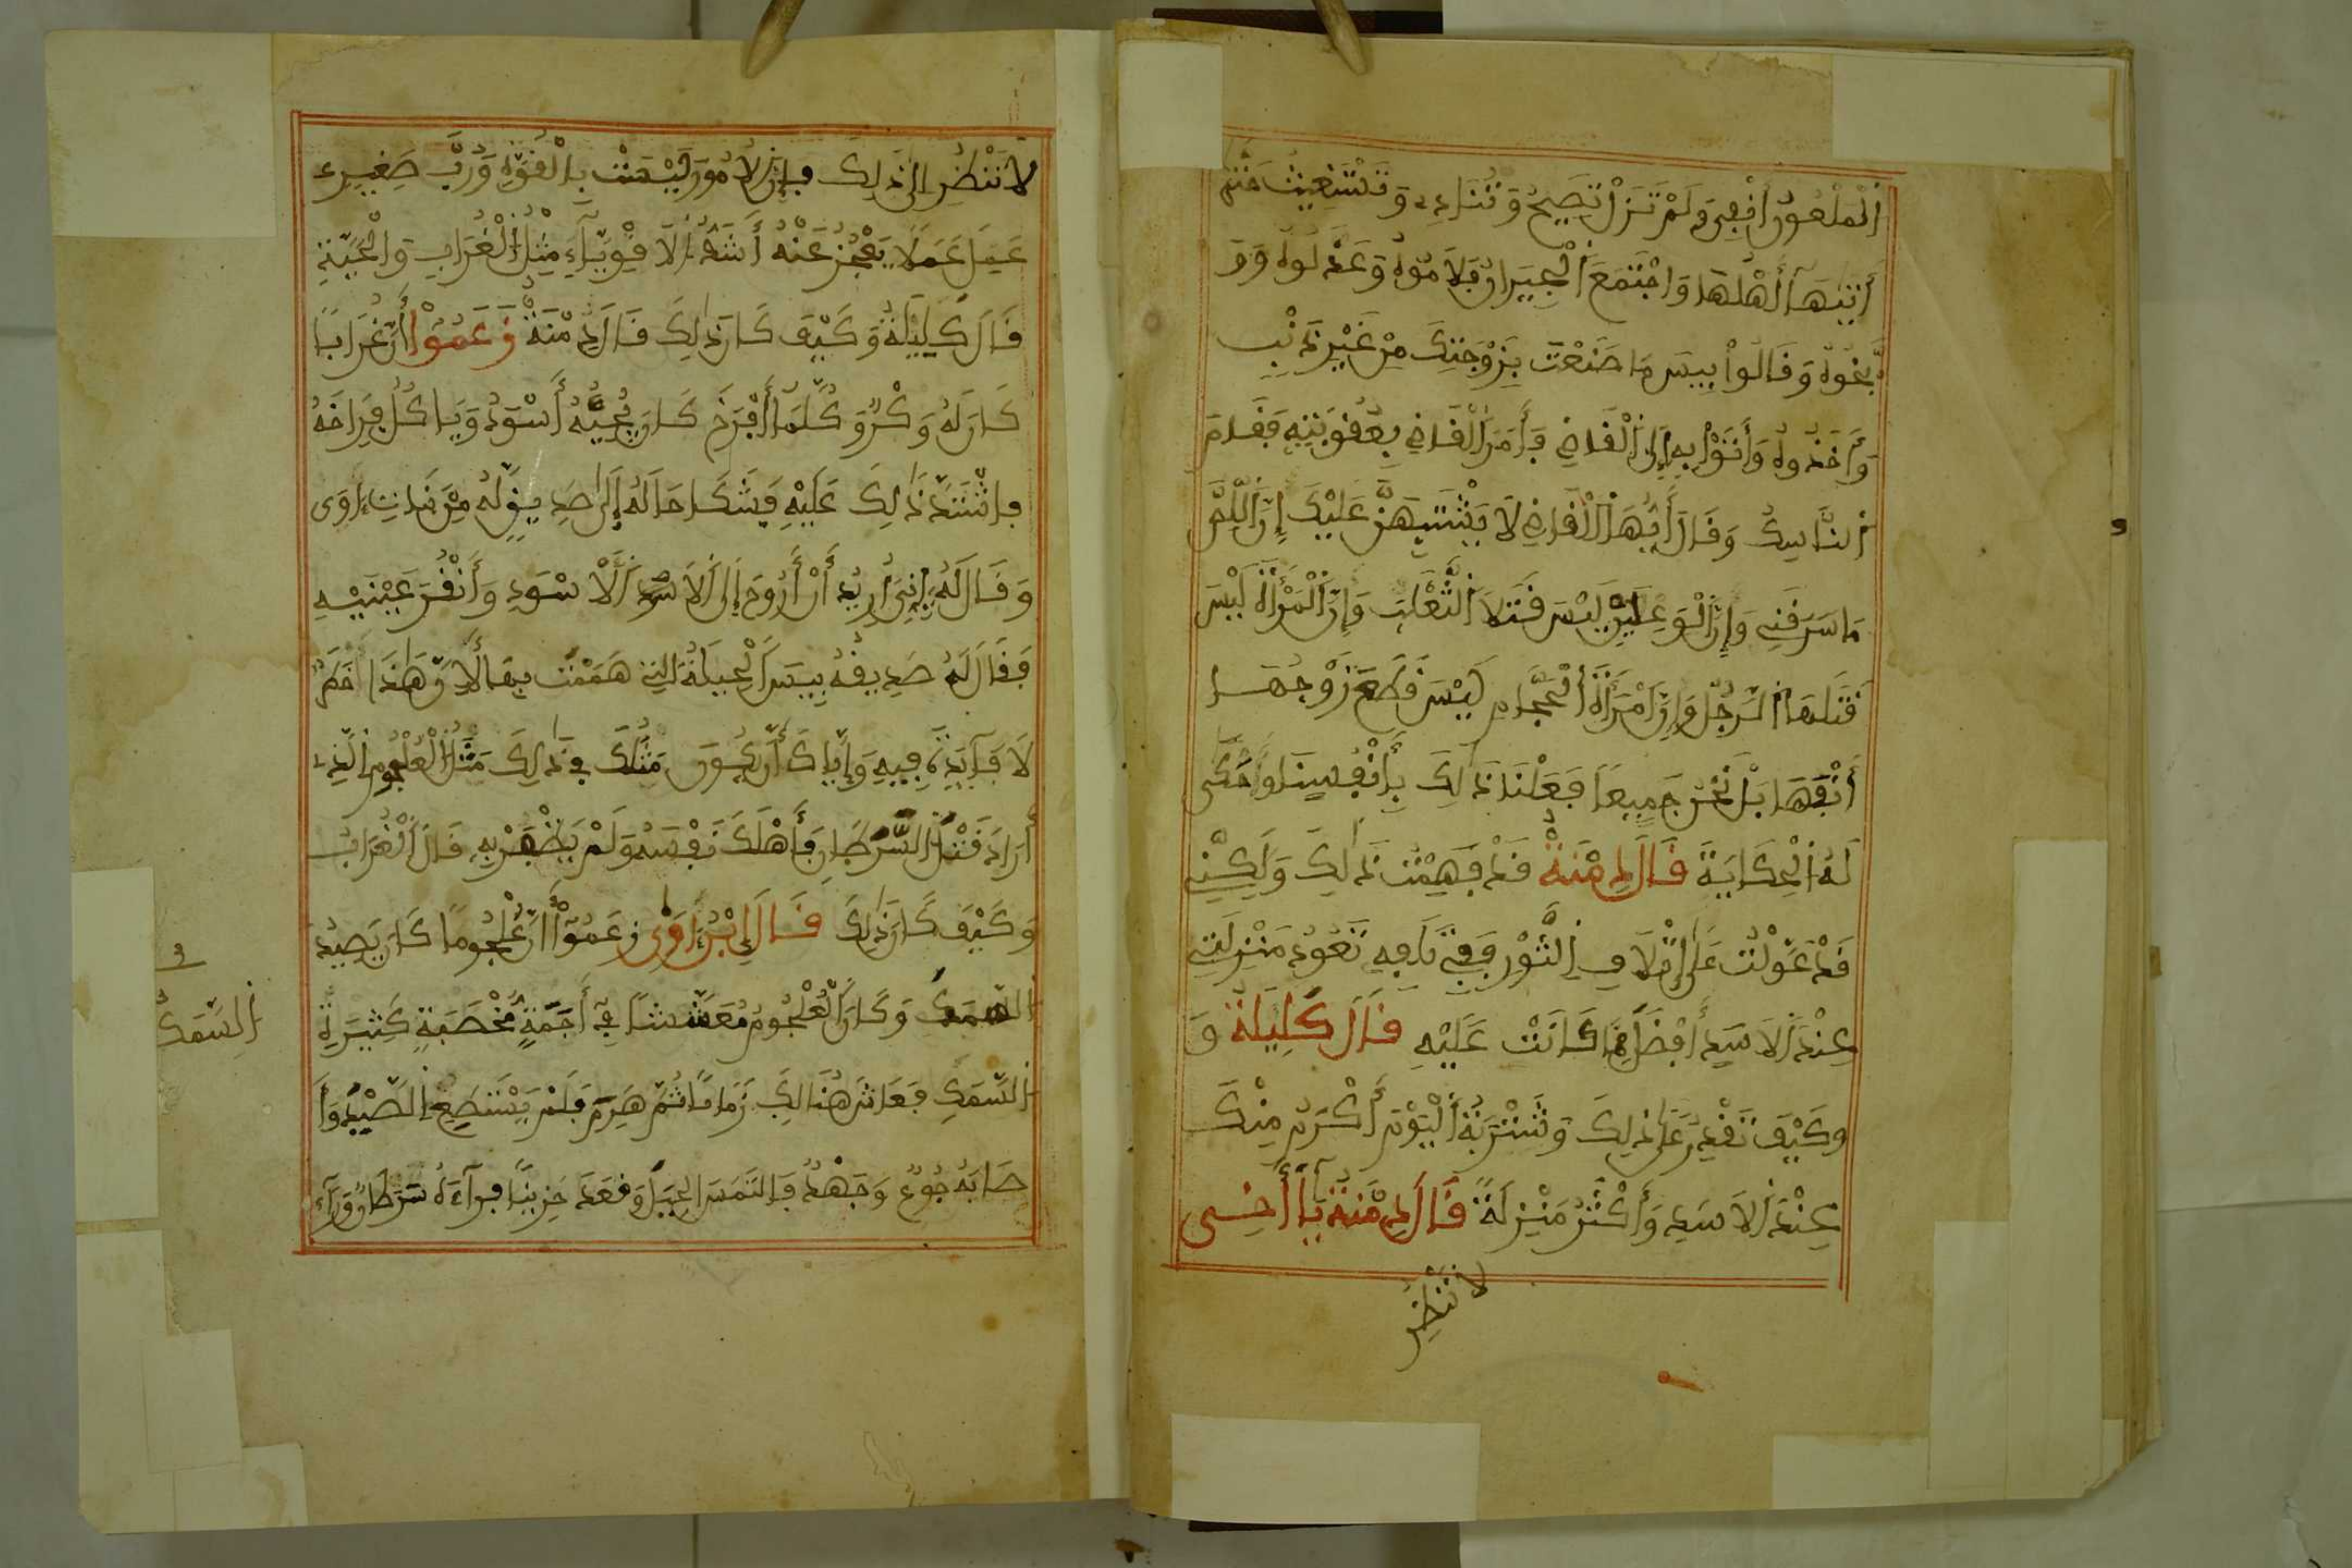 الملعون انفي ولم تزل تصيح وتنادي وتستغيث حتى
أتيها أهلها واجتمع الجيران فلاموه وعذلوه وو
بخوه وقالوا بيس ما صنعت بزوجتك من غير ذنب
وأخذوه وأتوا به إلى القاضي فأمر القاضي بعقوبته فقام
الناسك وقال أيها القاضي لا يشتبهن عليك إن اللص
ما سرقني وإن الوعلين ليس قتلا الثعلب وإن المرأة ليس
قتلها الرجل وإن امرأة الحجام ليس قطع زوجها
أنفها بل نحن جميعا فعلنا ذلك بأنفسنا وحكى
له الحكاية قال دمنة قد فهمت ذلك ولكنني
قد عولت على إتلاف الثور وفي تلافه تعود منزلتي
عند الأسد أفضل مما كانت عليه قال كليلة و
وكيف تقدر على ذلك وشنتربة اليوم أكرم منك
عند الأسد وأكثر منزلة قال دمنة يا أخي
لا تنظر
لا تنظر إلى ذلك فإن الأمور ليست بالقوة ورب صغير
عمل عملا يعجز عنه أشد الأقوياء مثل الغراب والحية
قال كليلة وكيف كان ذلك قال دمنة زعموا أن غرابا
كان له وكر وكلما أفرخ كان يجيه أسود ويأكل فراخه
فاشتد ذلك عليه فشكا حاله إلى صديق له من بنات ءاوى
وقال له إنني أريد أن أروح إلى الأسد الأسود وأنقر عينيه
فقال له صديقه بيس الحيلة التي هممت بها لأن هذا أمر
لا فآيدة فيه وإياك أن يكون مثلك في ذلك مثل العلجوم الذي
أراد قتل السرطان فأهلك نفسه ولم يظفر به قال الغراب
وكيف كان ذلك قال ابن ءاوى زعموا أن علجوما كان يصيد
السمك وكان العلجوم معششا في أجمة مخصبة كثيرة
السمك فعاش هنالك زمانا ثم هرم فلم يستطع الصيد وأ
صابه جوع وجهد فالتمس الحيل وقعد حزينا فرآه سرطان ورآء
السمك